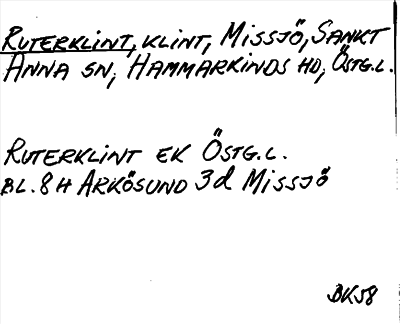 RUTERKLINT, KLINT, MISSJÖ, SANKT
ANNA SN, HAMMARKINDS HD, ÖSTG.L.
RUTERKLINT EK ÖSTG.L.
BL. 8H ARKÖSUND 3d MISSJÖ
BK58